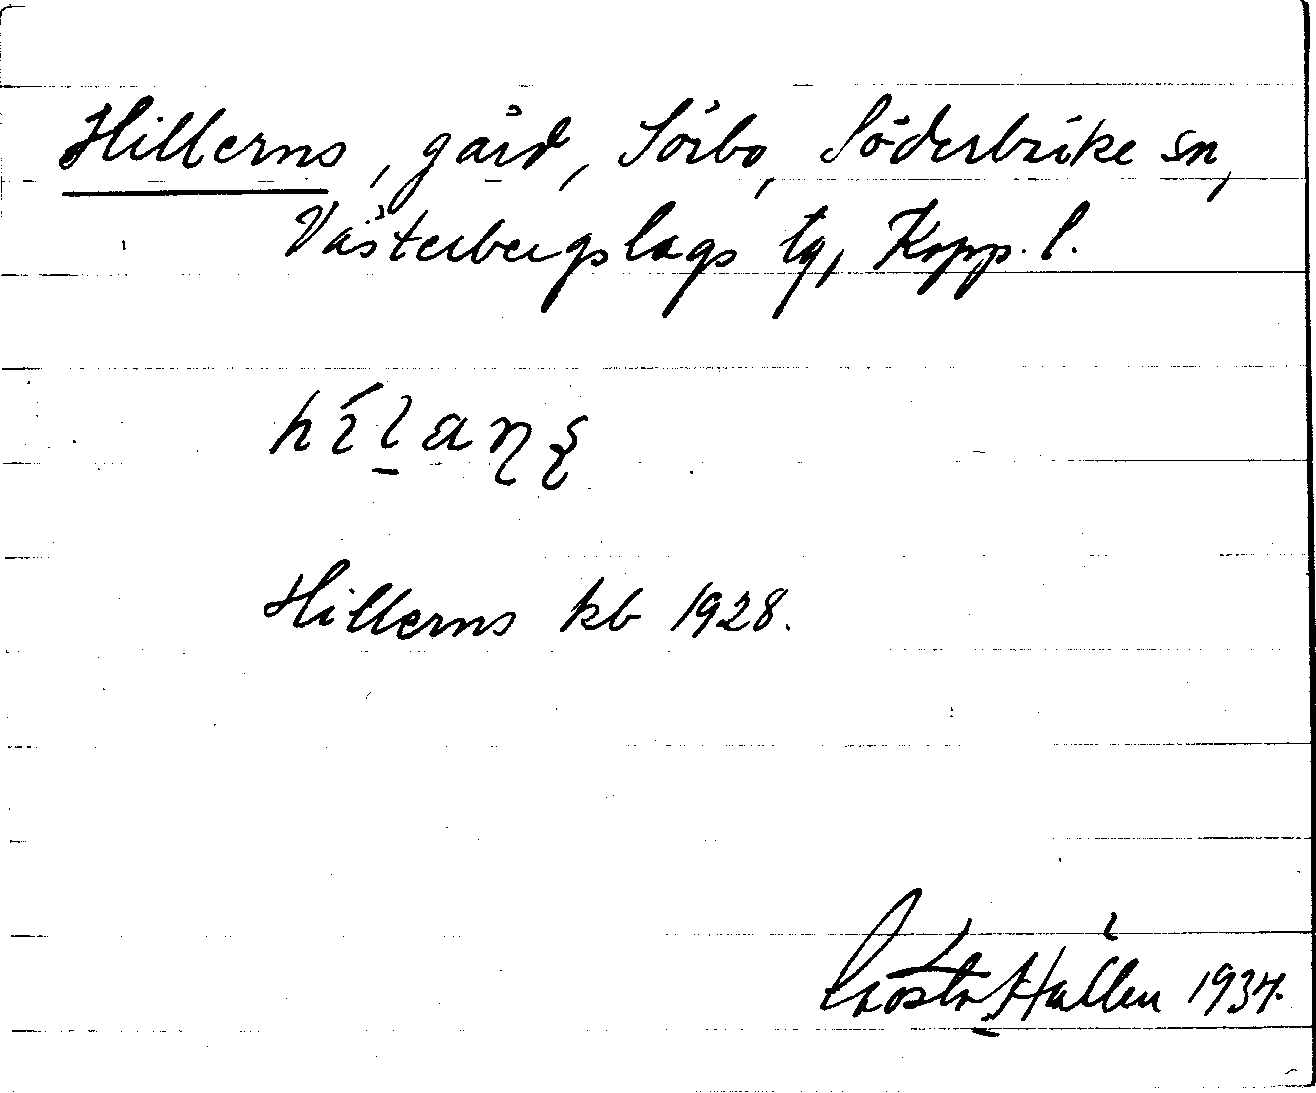 Hillerns, gård, Sörbo, Söderbärke sn,
Västerbergslags tg, Kopp. l.
hı́l̠aɳʂ
Hillerns kb 1928.
Gösta Hallén 1934.